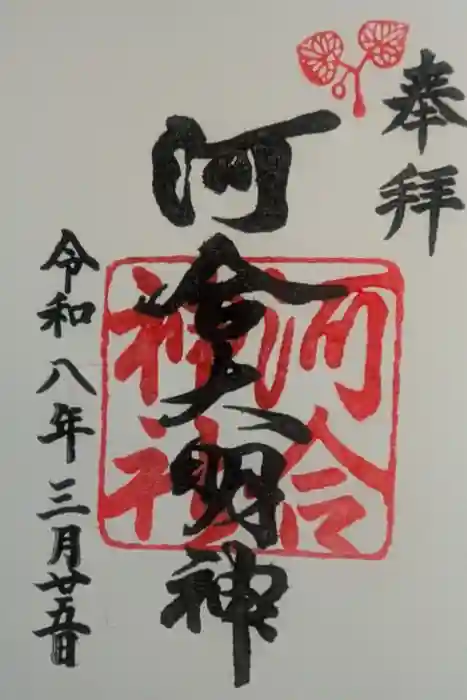 奉拝
河合大明神
河合神社
令和八年三月廿五日